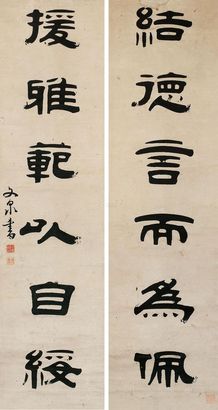 結德言而為佩
援雅範以自綏
文泉書